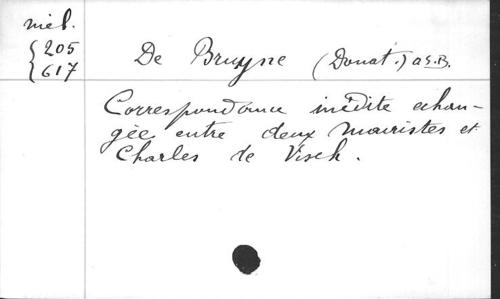 miel.
{205
{617
De Bruyne (Donat.) o.S.B.
Correspondance inédite échan-
gée entre deux mauristes et
Charles de Visch.